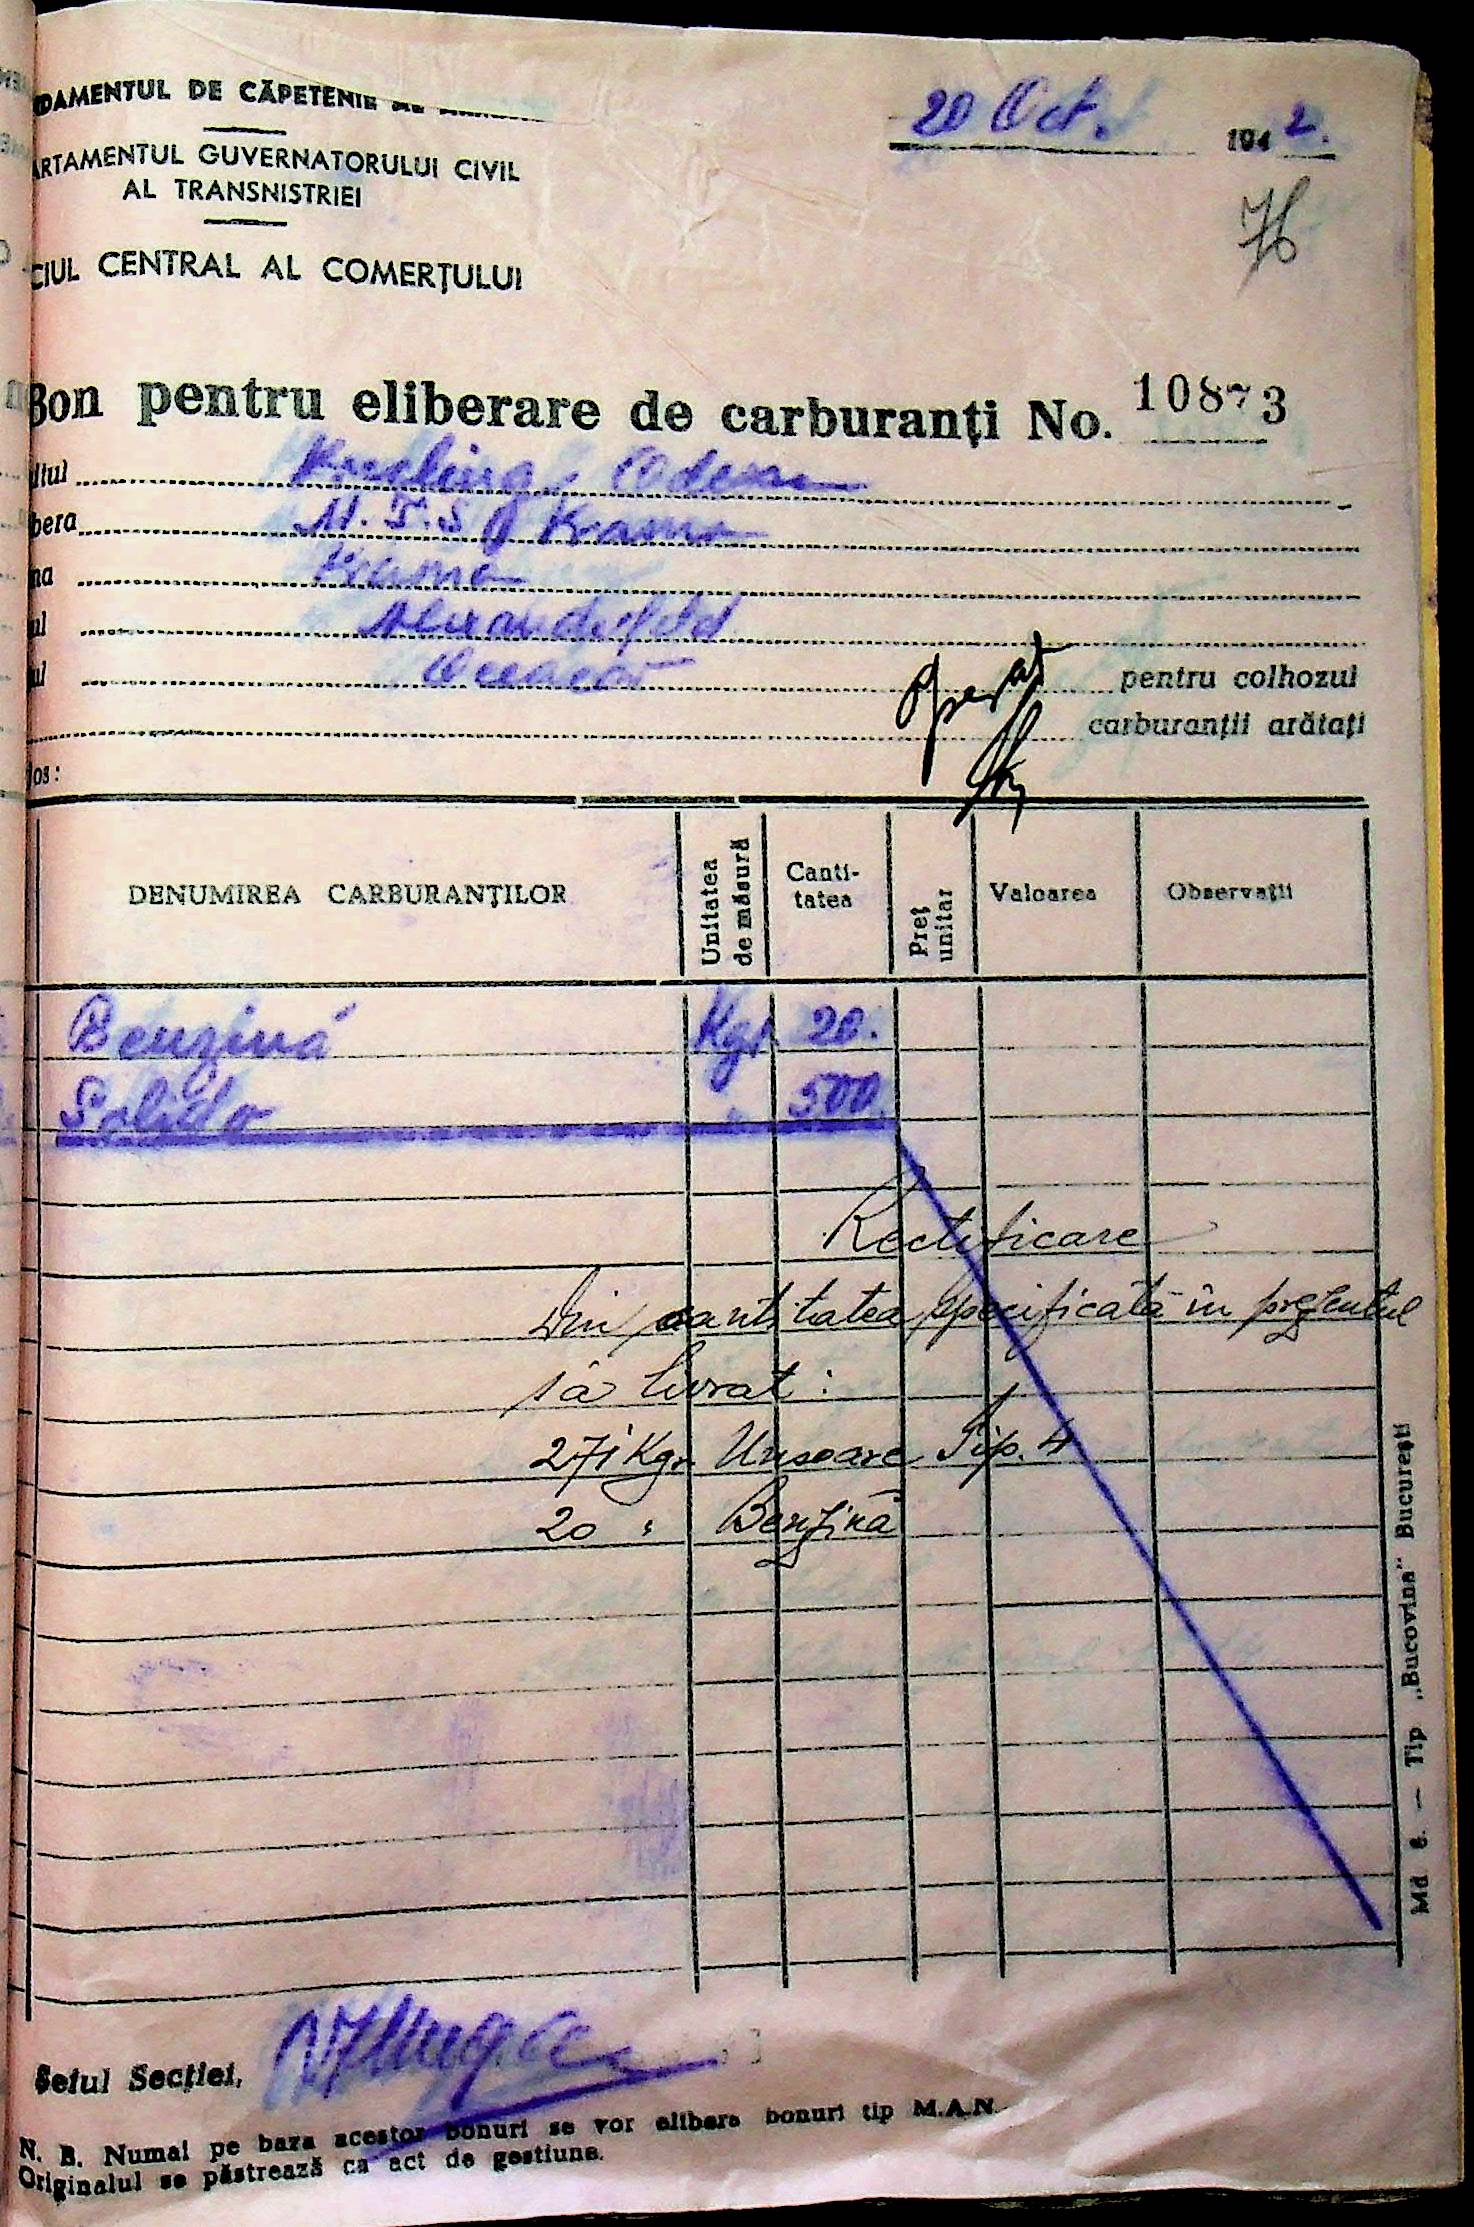 DAMENTUL DE CĂPETENIE AL
20 Oct. 1942.
ARTAMENTUL GUVERNATORULUI CIVIL
AL TRANSNISTRIEI
76
CIUL CENTRAL AL COMERŢULUI
Bon pentru eliberare de carburanţi No. 10873
ltul Odesa
bera M. T. S.
na
ul Alexanderfeld
ul Oceacov Operat pentru colhozul
carburanţii arătaţi
os:
DENUMIREA CARBURANŢILOR Unitatea de măsură Canti-tatea Preţ unitar Valoarea Observaţii
Benzină Kgr. 20.
Solidol " 500.
Rectificare
Din cantitatea specificată în prezentul
s'a livrat:
271 Kgr. Unsoare Tip. 4
20 " Benzină
Md 6. — Tip „Bucovina" Bucureşti
Şeful Secţiei,
N. B. Numai pe baza acestor bonuri se vor elibera bonuri tip M.A.N.
Originalul se păstrează ca act de gestiune.